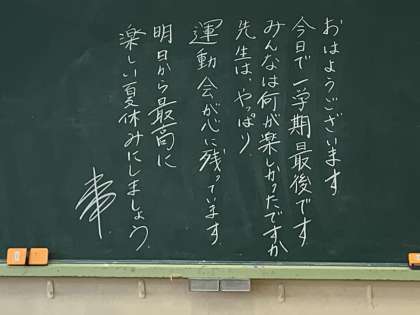 おはようございます
今日で一学期最後です
みんなは何が楽しかったですか
先生は、やっぱり
運動会が心に残っています
明日から最高に
楽しい夏休みにしましょう。